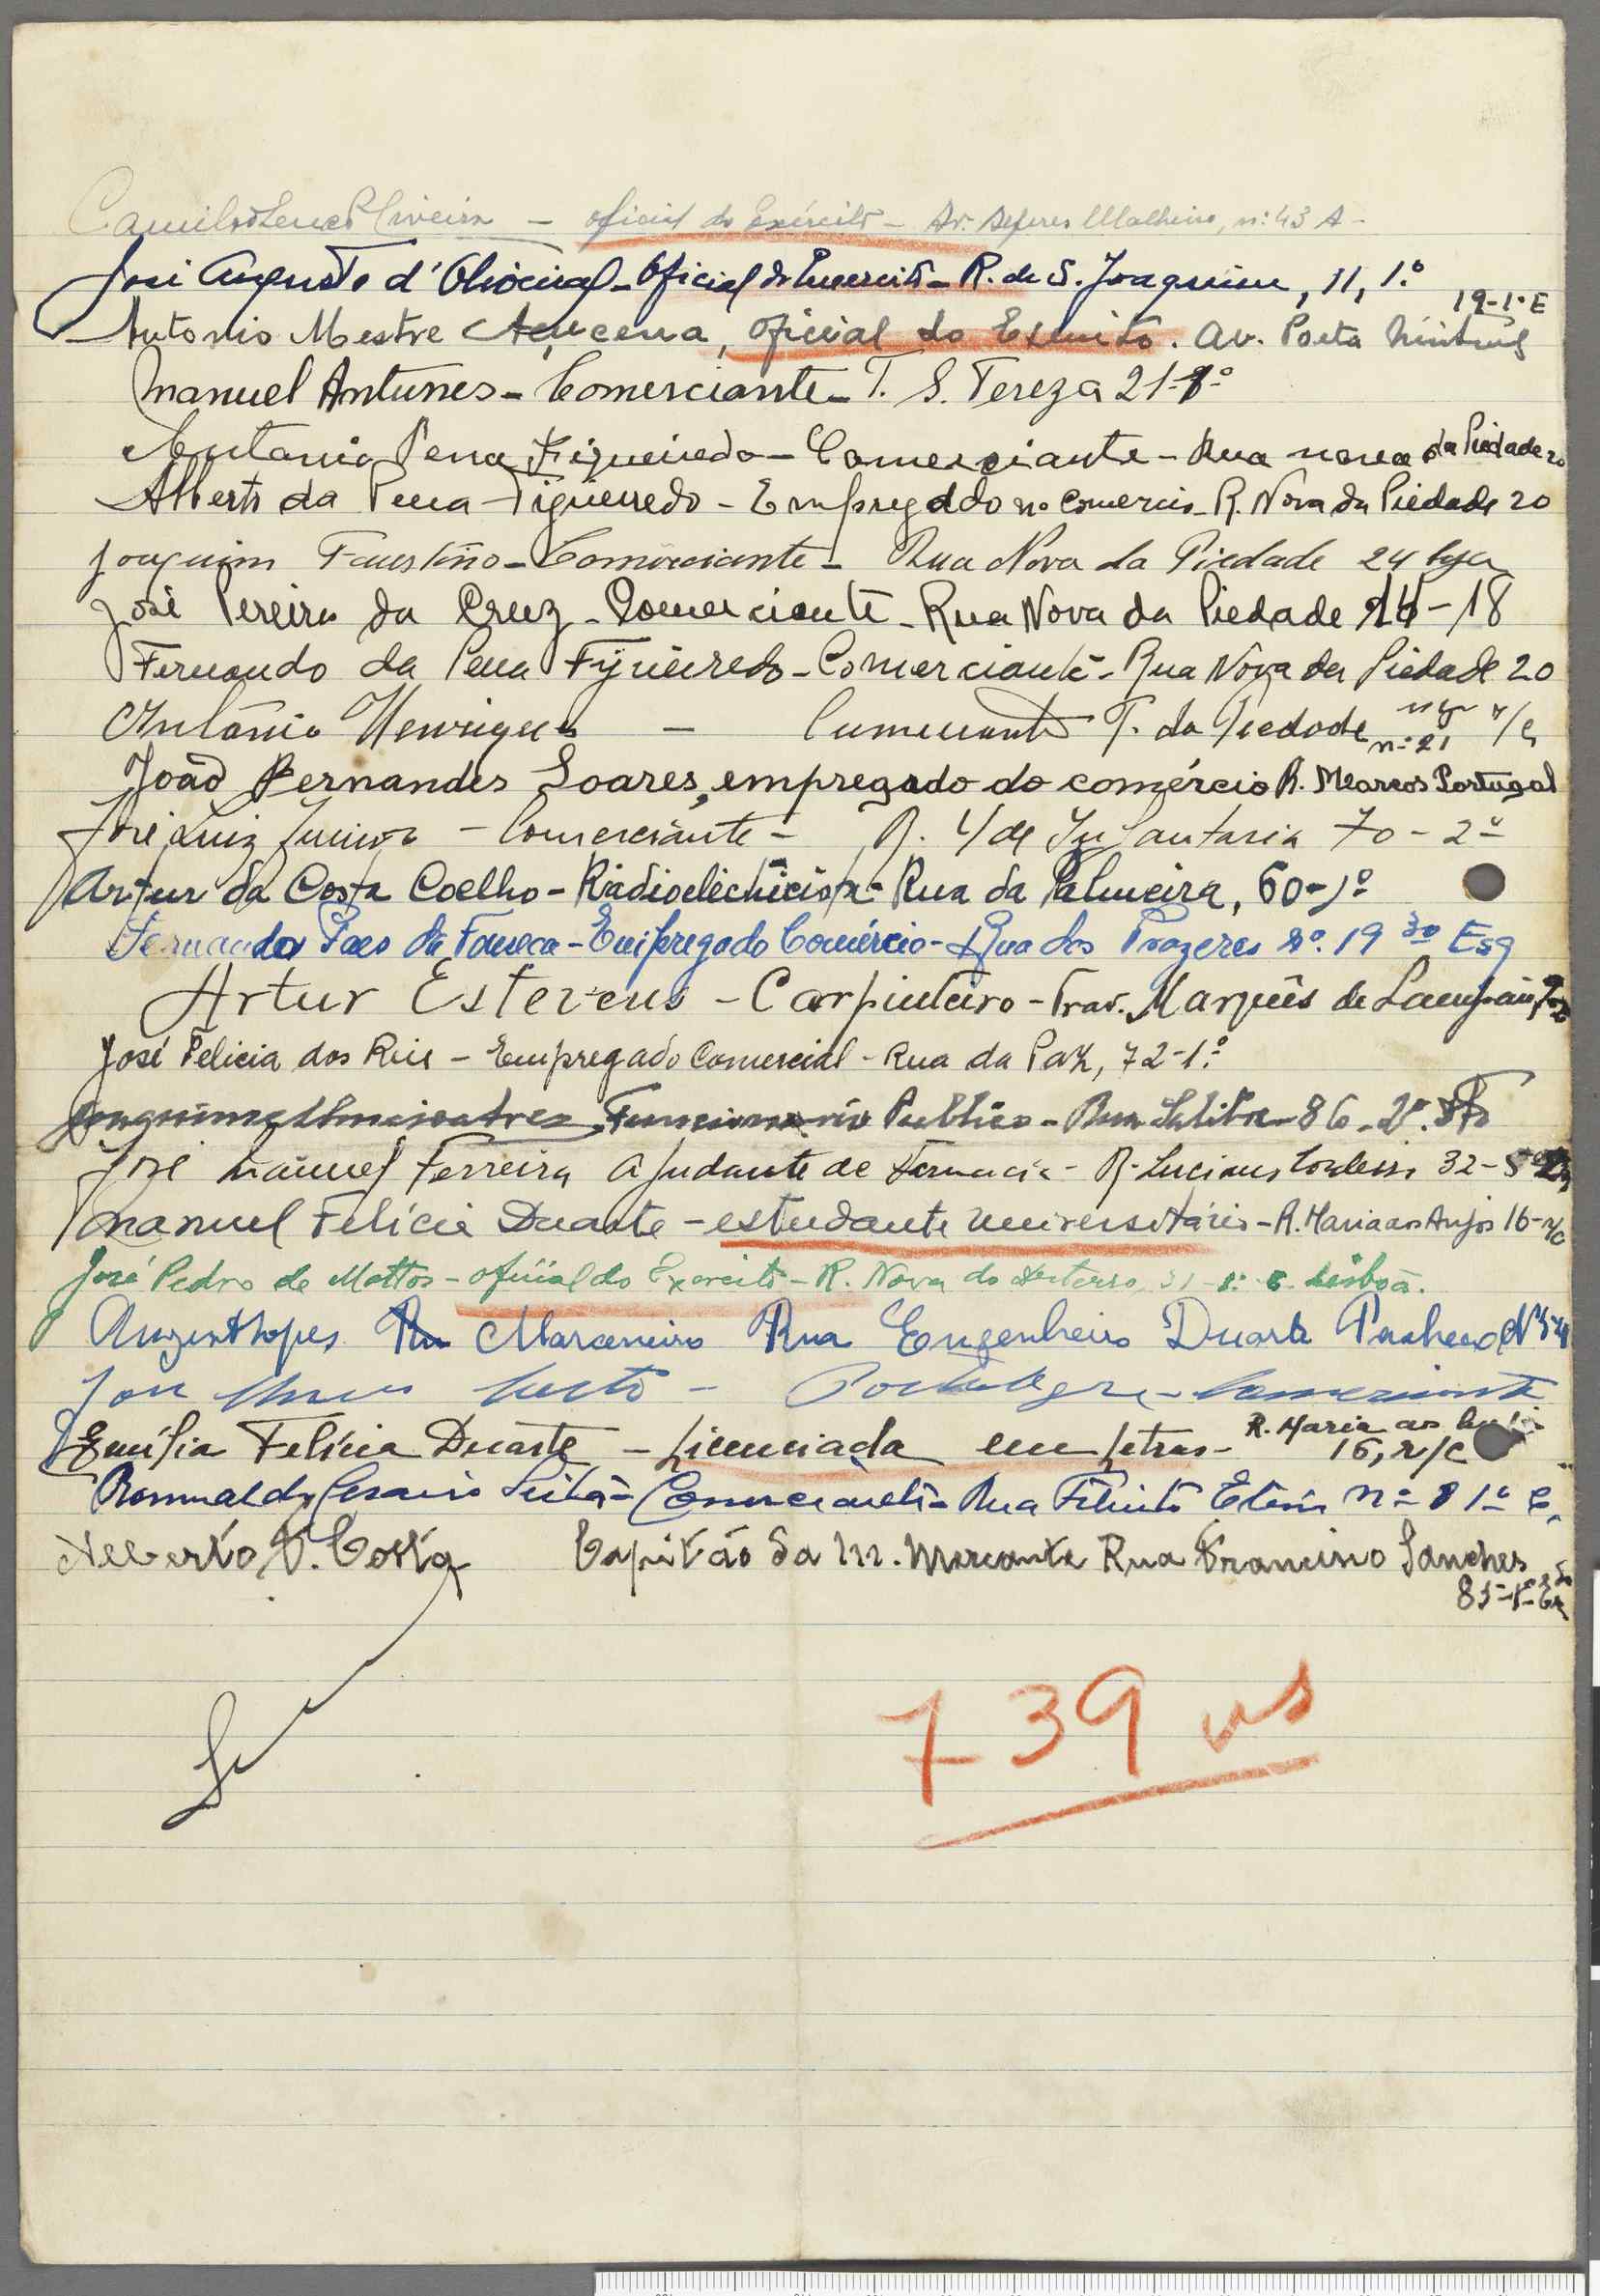 Oliveira – oficial do Exército – Av. Malheiro, nº 43 A –
José Augusto d'Oliveira – Oficial do Exercito – R. de S. Joaquim, 11, 1.º
19-1º E
Antonio Mestre Açucena, oficial do Exercito. Av. Poeta Mistral
Manuel Antunes – Comerciante – T. S. Tereza 21-1º
Antonio Pena Figueiredo – Comerciante – Rua nova da Piedade 20
Alberto da Pena Figueiredo – Empregado no Comercio – R. Nova da Piedade 20
Joaquim Faustino – Comerciante – Rua Nova da Piedade 24 loja
José Pereira da Cruz – Comerciante – Rua Nova da Piedade 14-18
Fernando da Pena Figueiredo – Comerciante – Rua Nova da Piedade 20
António Henriques – Comerciante T. da Piedade nº 21 r/c
João Fernandes Soares, empregado do comércio R. Marcos Portugal
José Luiz Junior – Comerciante – R. 4 de Infantaria 70-2º
Artur da Costa Coelho – Radioelectricista – Rua da Palmeira, 60-1º
Fernando Paes da Fonseca – Empregado Comércio – Rua dos Prazeres nº. 19 3º Esq
Artur Esteves – Carpinteiro – Trav. Marquês de Sampaio
José Felicia dos Reis – Empregado Comercial – Rua da Paz, 72-1.º
Funcionario Publico – Rua 86-2º.
José Manuel Ferreira Ajudante de Farmacia – R. Luciano Cordeiro 32-5º
Manuel Felícia Duarte – estudante universitário – R. Maria aos Anjos 16-r/c
José Pedro de Mattos – oficial do Exercito – R. Nova do Desterro, 21-1º E Lisboa.
Lopes Marceneiro Rua Engenheiro Duarte Pacheco Nº
– Portalegre – Comerciante
Emília Felícia Duarte – Licenciada em Letras – R. Maria aos Anjos
16, r/c
Romualdo Leitão – Comerciante – Rua Filinto Elísio nº 8 1º E.
Alberto V. Costa Capitão da M. Mercante Rua Francisco Sanches
85-1º Esq
739 vs